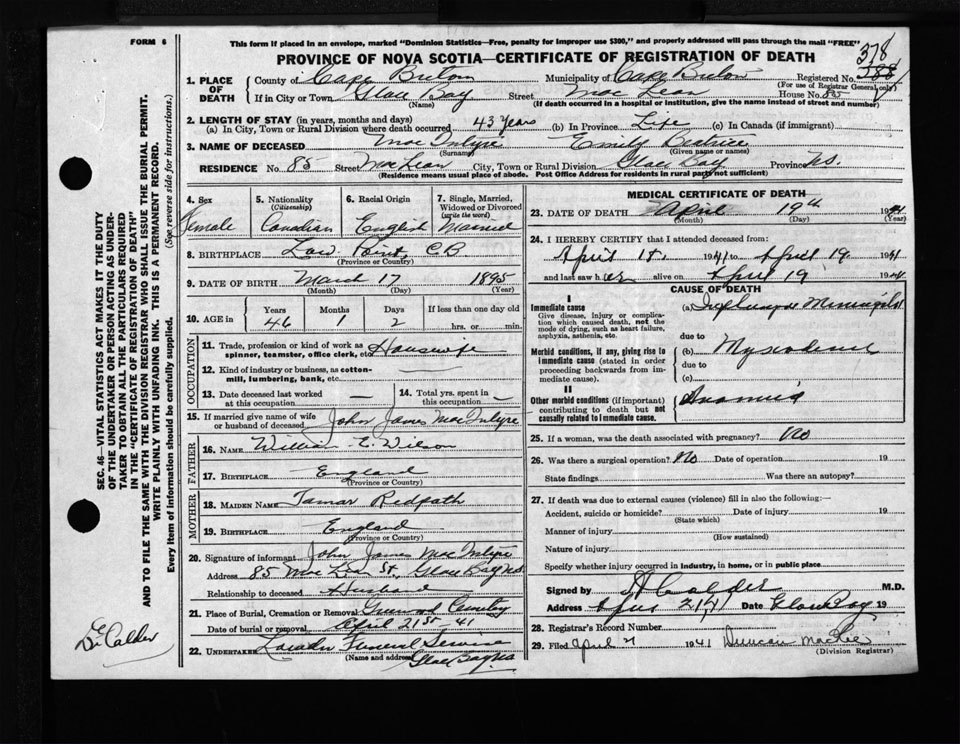 FORM 6
This form if placed in an envelope, marked "Dominion Statistics—Free, penalty for improper use $300," and properly addressed will pass through the mail "FREE"
PROVINCE OF NOVA SCOTIA—CERTIFICATE OF REGISTRATION OF DEATH
378
1. PLACE OF DEATH County of Cape Breton Municipality of Cape Breton Registered No. 388
(For use of Registrar General only)
If in City or Town Glace Bay Street MacLean House No. 85
(Name) (If death occurred in a hospital or institution, give the name instead of street and number)
2. LENGTH OF STAY (in years, months and days)
(a) In City, Town or Rural Division where death occurred 43 years (b) In Province Life (c) In Canada (if immigrant)
3. NAME OF DECEASED MacIntyre Emily
(Surname) (Given name or names)
RESIDENCE No. 85 Street MacLean City, Town or Rural Division Glace Bay Province N.S.
(Residence means usual place of abode. Post Office Address for residents in rural parts not sufficient)
SEC. 46—VITAL STATISTICS ACT MAKES IT THE DUTY
OF THE UNDERTAKER OR PERSON ACTING AS UNDER-
TAKER TO OBTAIN ALL THE PARTICULARS REQUIRED
IN THE "CERTIFICATE OF REGISTRATION OF DEATH"
AND TO FILE THE SAME WITH THE DIVISION REGISTRAR WHO SHALL ISSUE THE BURIAL PERMIT.
WRITE PLAINLY WITH UNFADING INK. THIS IS A PERMANENT RECORD.
Every item of information should be carefully supplied. (See reverse side for instructions.)
4. Sex
Female
5. Nationality
(Citizenship)
Canadian
6. Racial Origin
English
7. Single, Married, Widowed or Divorced
(write the word)
Married
8. BIRTHPLACE Low Point, C.B.
(Province or Country)
9. DATE OF BIRTH March 17 1895
(Month) (Day) (Year)
10. AGE in Years Months Days If less than one day old
46 1 2 hrs. or min.
OCCUPATION
11. Trade, profession or kind of work as
spinner, teamster, office clerk, etc. Housewife
12. Kind of industry or business, as cotton-
mill, lumbering, bank, etc.
13. Date deceased last worked
at this occupation —
14. Total yrs. spent in
this occupation —
15. If married give name of wife
or husband of deceased John James MacIntyre
FATHER
16. NAME William E. Wilson
17. BIRTHPLACE England
(Province or Country)
MOTHER
18. MAIDEN NAME Tamar Redpath
19. BIRTHPLACE England
(Province or Country)
20. Signature of informant John James MacIntyre
Address 85 MacLean St. Glace Bay N.S.
Relationship to deceased Husband
21. Place of Burial, Cremation or Removal Greenwood Cemetery
Date of burial or removal April 21st 41
22. UNDERTAKER Funeral Service
(Name and address) Glace Bay N.S.
MEDICAL CERTIFICATE OF DEATH
23. DATE OF DEATH April 19th 1941
(Month) (Day)
24. I HEREBY CERTIFY that I attended deceased from:
April 1941 to April 19 1941
and last saw her alive on April 19 1941
CAUSE OF DEATH
I
Immediate cause
Give disease, injury or complica-
tion which caused death, not the
mode of dying, such as heart failure,
asphyxia, asthenia, etc.
(a) Influenzal Meningitis
due to
Morbid conditions, if any, giving rise to
immediate cause (stated in order
proceeding backwards from im-
mediate cause).
(b) Myxoedema
due to
(c)
II
Other morbid conditions (if important)
contributing to death but not
causally related to immediate cause.
Anaemia
25. If a woman, was the death associated with pregnancy? No
26. Was there a surgical operation? No Date of operation 19
State findings Was there an autopsy?
27. If death was due to external causes (violence) fill in also the following:—
Accident, suicide or homicide? Date of injury 19
(State which)
Manner of injury
(How sustained)
Nature of injury
Specify whether injury occurred in industry, in home, or in public place
Signed by Calder M.D.
Address April 21/41 Date Glace Bay 19
28. Registrar's Record Number
29. Filed April 1941 Duncan
(Division Registrar)
Calder